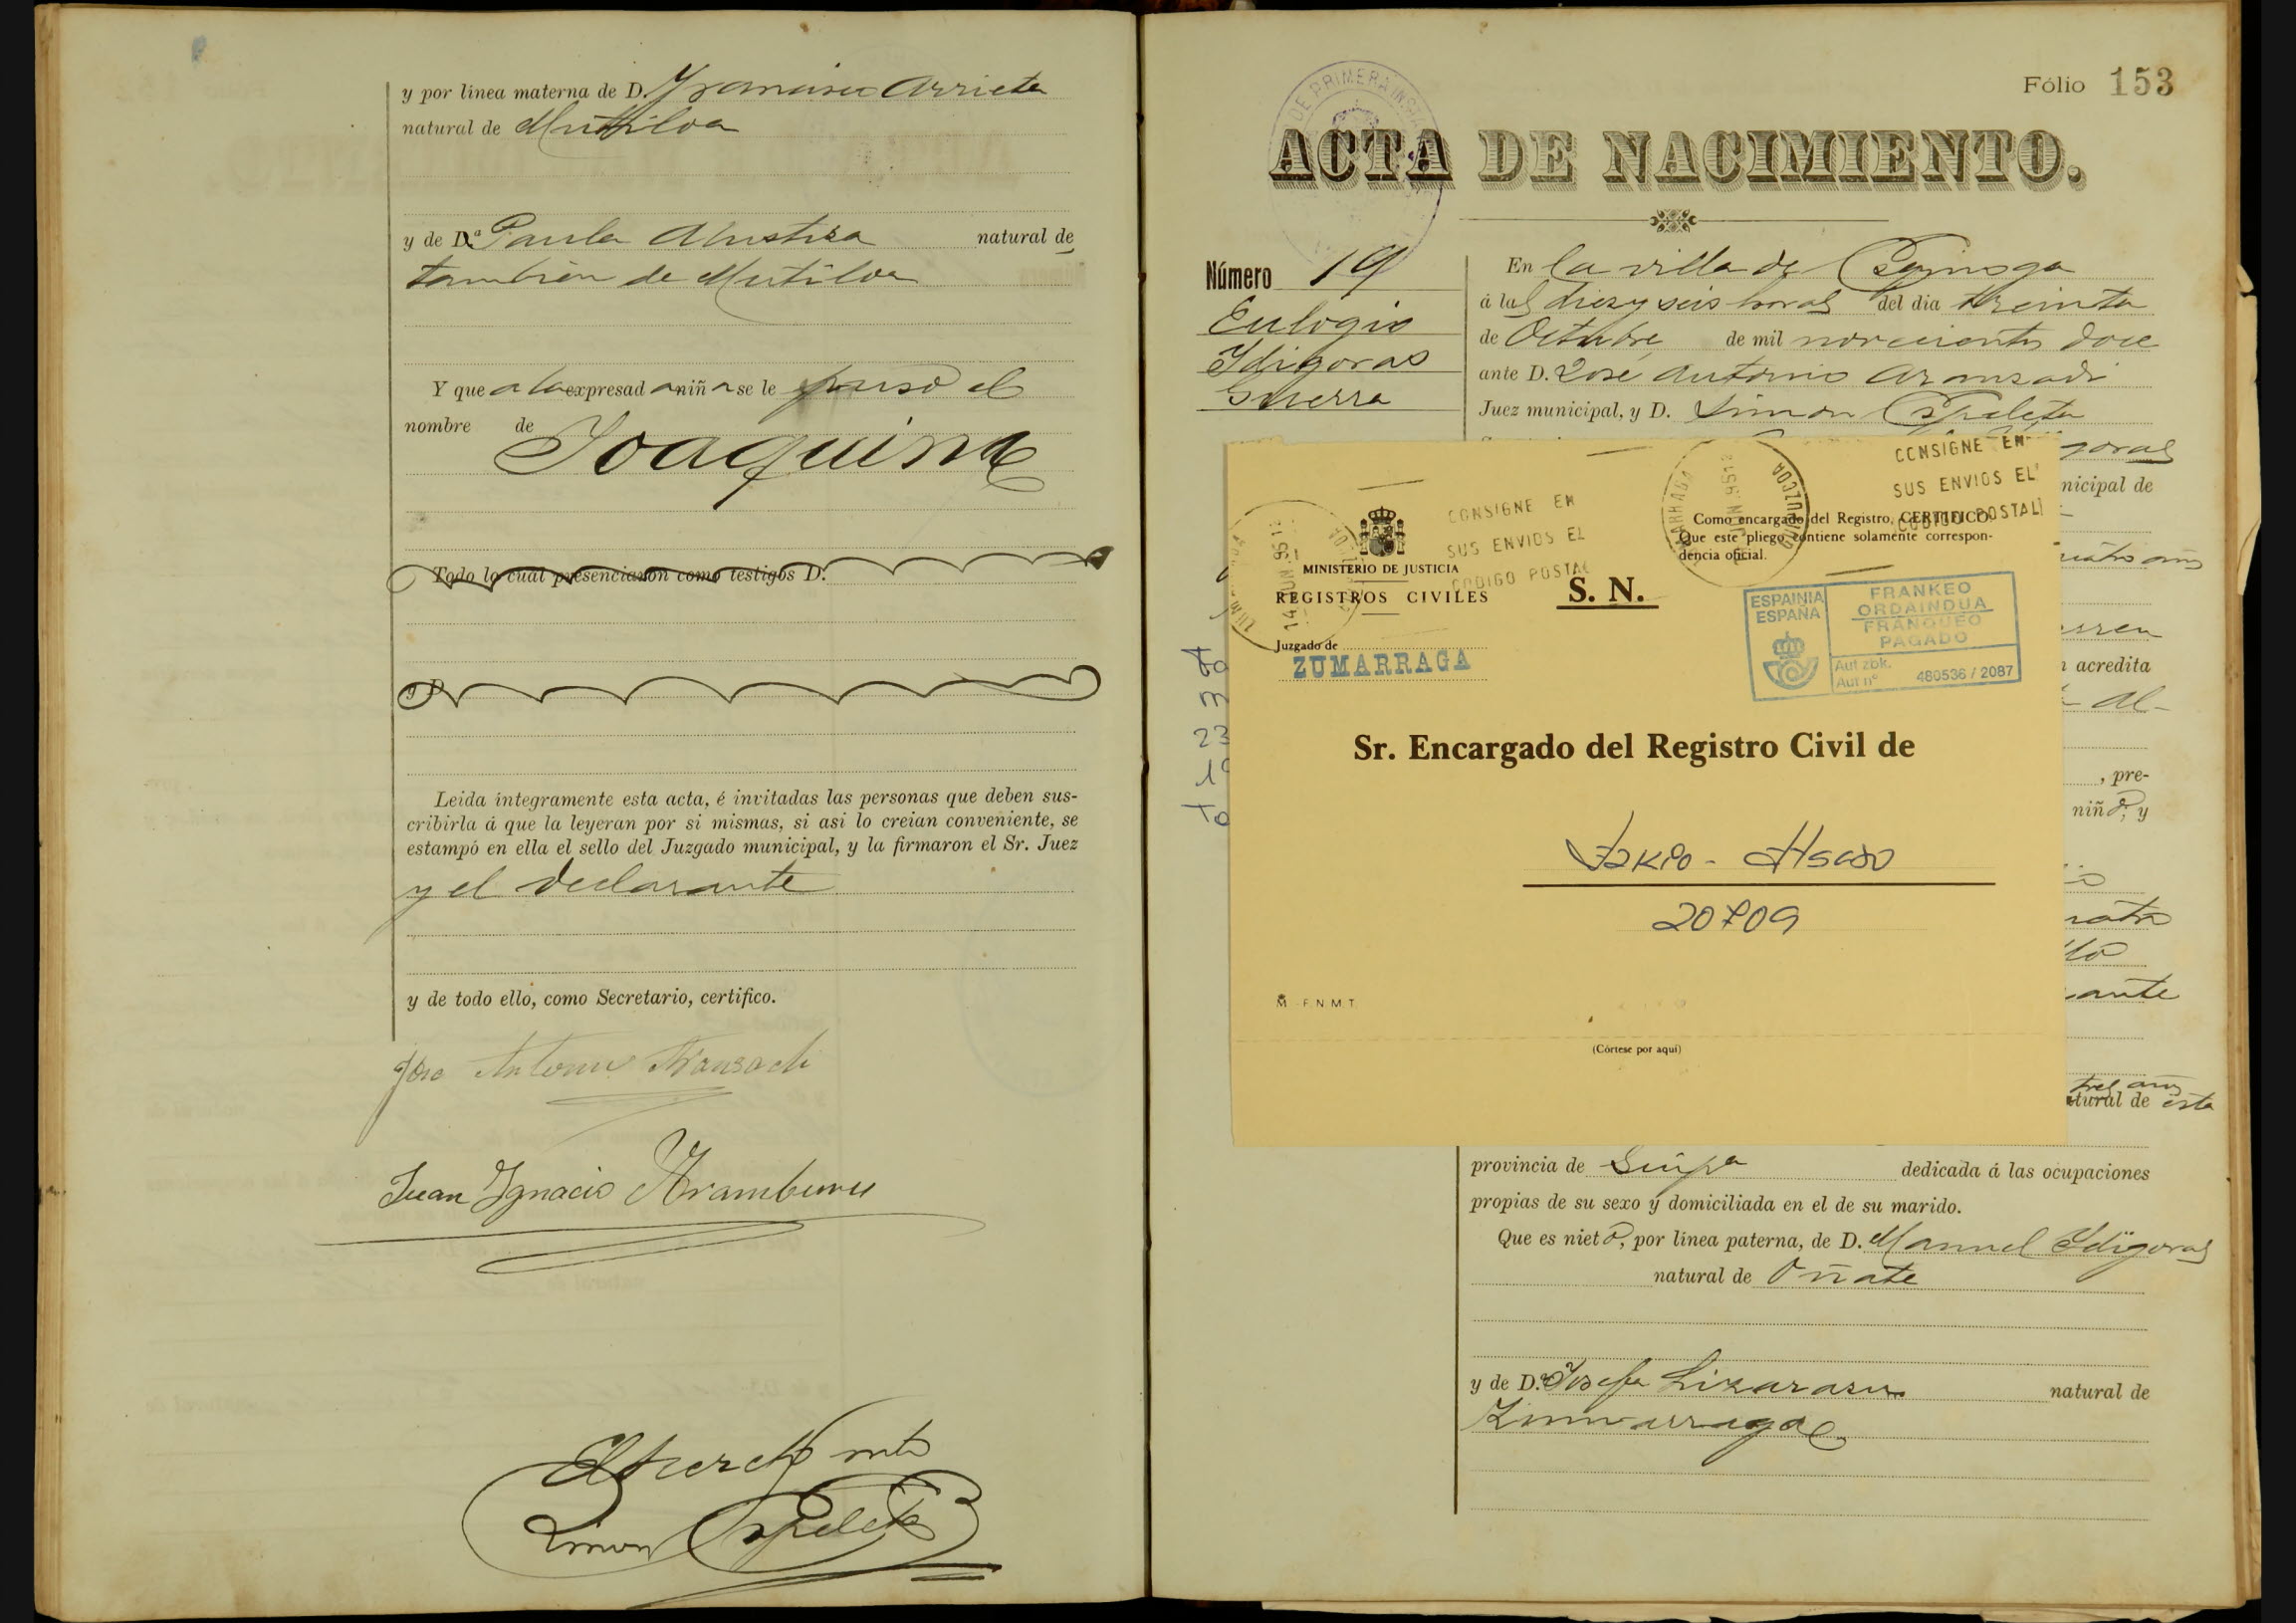 y por línea materna de D. Francisco Arrieta
natural de Mutiloa
y de D.ª Paula Alustiza natural de
tambien de Mutiloa
Y que a la expresada niña se le puso el
nombre de
Joaquina
Todo lo cual presenciaron como testigos D.
y D.
Leida íntegramente esta acta, é invitadas las personas que deben sus-
cribirla á que la leyeran por si mismas, si asi lo creian conveniente, se
estampó en ella el sello del Juzgado municipal, y la firmaron el Sr. Juez
y el declarante
y de todo ello, como Secretario, certifico.
José Antonio Aranzadi
Juan Ignacio Aramburu
Simon Ezpeleta
Fólio 153
DE PRIMERA INS
ACTA DE NACIMIENTO.
Número 19
Eulogio
Idigoras
Guerra
En la villa de
á las diez y seis horas del dia treinta
de Octubre de mil novecientos doce
ante D. José Antonio Aranzadi
Juez municipal, y D. Simon Ezpeleta
goras
nicipal de
uatro años
n acredita
Al-
, pre-
niño, y
ante
tres años
atural de esta
CONSIGNE EN
SUS ENVIOS EL
CODIGO POSTAL
CONSIGNE EN
SUS ENVIOS EL
CODIGO POSTAL
MINISTERIO DE JUSTICIA
REGISTROS CIVILES
S. N.
Como encargado del Registro, CERTIFICO:
Que este pliego contiene solamente correspon-
dencia oficial.
Juzgado de
ZUMARRAGA
ESPAINIA
ESPAÑA
FRANKEO
ORDAINDUA
FRANQUEO
PAGADO
Aut zbk.
Aut nº 480536 / 2087
Sr. Encargado del Registro Civil de
20709
F.N.M.T.
(Córtese por aquí)
provincia de Guip.a dedicada á las ocupaciones
propias de su sexo y domiciliada en el de su marido.
Que es nieto, por línea paterna, de D. Manuel Idigoras
natural de Oñate
y de D.ª Josefa Lizarazu natural de
Zumarraga